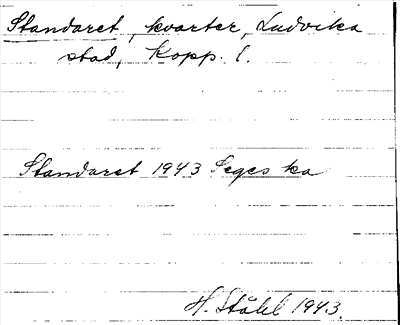 Standaret, kvarter, Ludvika
stad, Kopp. l.
Standaret 1943 Seges ka
H. Ståhl 1943.